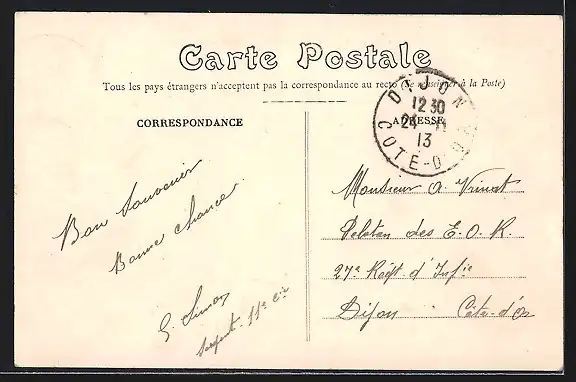 Carte Postale
Tous les pays étrangers n'acceptent pas la correspondance au recto (Se renseigner à la Poste)
DIJON
12 30
24
13
COTE-D'OR
CORRESPONDANCE
ADRESSE
Bon Souvenir
Bonne chance
G. Simon
Sergent - 11e Cie
Monsieur A.
Peloton des E.O.R.
27e Régt d'Infie
Dijon Côte-d'Or